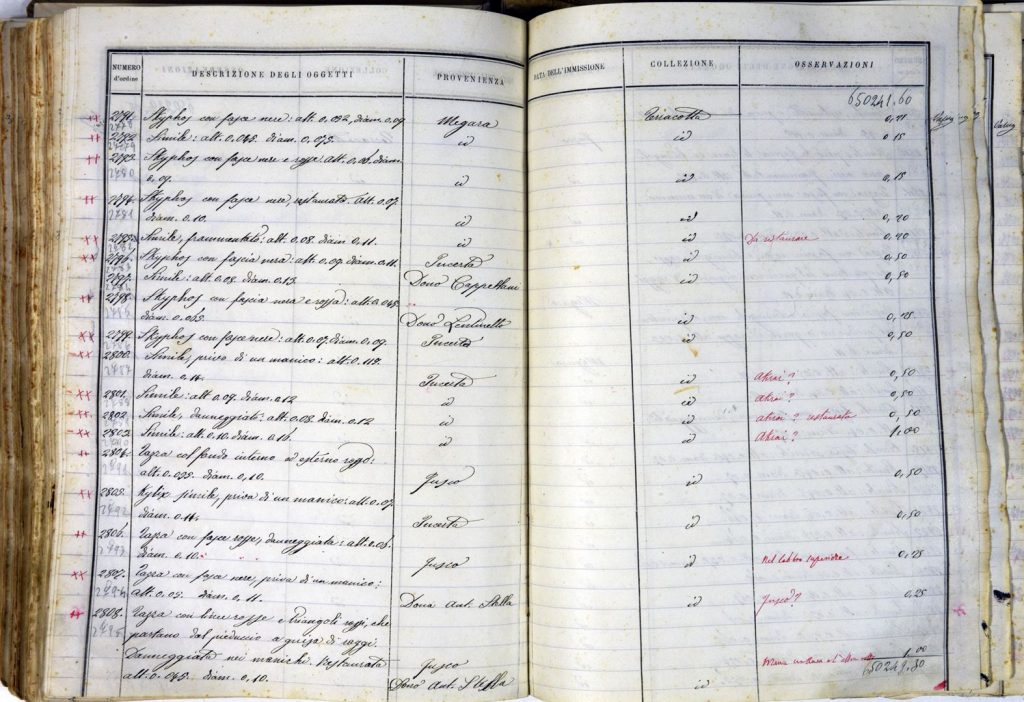 NUMERO d'ordine DESCRIZIONE DEGLI OGGETTI PROVENIENZA DATA DELL'IMMISSIONE COLLEZIONE OSSERVAZIONI
650241.60
2791. Skyphos con fasce nere: alt. 0.052, diam. 0.09 Megara Terracotta 0,21
2792. Simile: alt. 0.045. diam. 0.075. id id 0,15
2793. Skyphos con fasce nere e rosse alt. 0.06. diam.
0,09. id id 0,15
2794. Skyphos con fasce nere, restaurato. Alt. 0.07.
diam. 0.10. id id 0,20
2795. Simile, frammentato: alt. 0.08. diam. 0.11. id id Da restaurare 0,20
2796. Skyphos con fascia nera: alt. 0.09. diam. 0.11. Incerta id 0,50
2797. Simile: alt. 0.08. diam. 0.13. Dono Cappellani id 0,50
2798. Skyphos con fascia nera e rossa: alt. 0.045.
diam. 0.065. Dono Lentinello id 0,25
2799. Skyphos con fasce nere: alt. 0.07. diam. 0.09. Incerta id 0,50
2800. Simile, privo di un manico: alt. 0.115.
diam. 0.14. Incerta id Akrai? 0,50
2801. Simile: alt. 0.09. diam. 0.12 id id Akrai? 0,50
2802. Simile, danneggiato: alt. 0.08. diam. 0.12 id id Akrai? restaurata 0,50
2803. Simile: alt. 0.10. diam. 0.16. id id Akrai? 1.00
2804. Tazza col fondo interno ed esterno rosso:
alt. 0.035. diam. 0,10. Fusco id 0,50
2805. Kylix simile, priva di un manico: alt. 0.07.
diam. 0.14. Incerta id 0,50
2806. Tazza con fasce rosse, danneggiata: alt. 0.06.
diam. 0.10. Fusco id Nel labbro superiore 0,25
2807. Tazza con fasce nere, priva di un manico:
alt. 0.05. diam. 0,11. Dono Ant. Stella id Fusco? 0,25
2808. Tazza con linee rosse e triangoli rossi, che
partano dal pieduccio a guisa di raggi.
Danneggiata nei manichi. Restaurata Fusco 1.00
alt. 0.045. diam. 0,10. Dono Ant. Stella id 650249.30